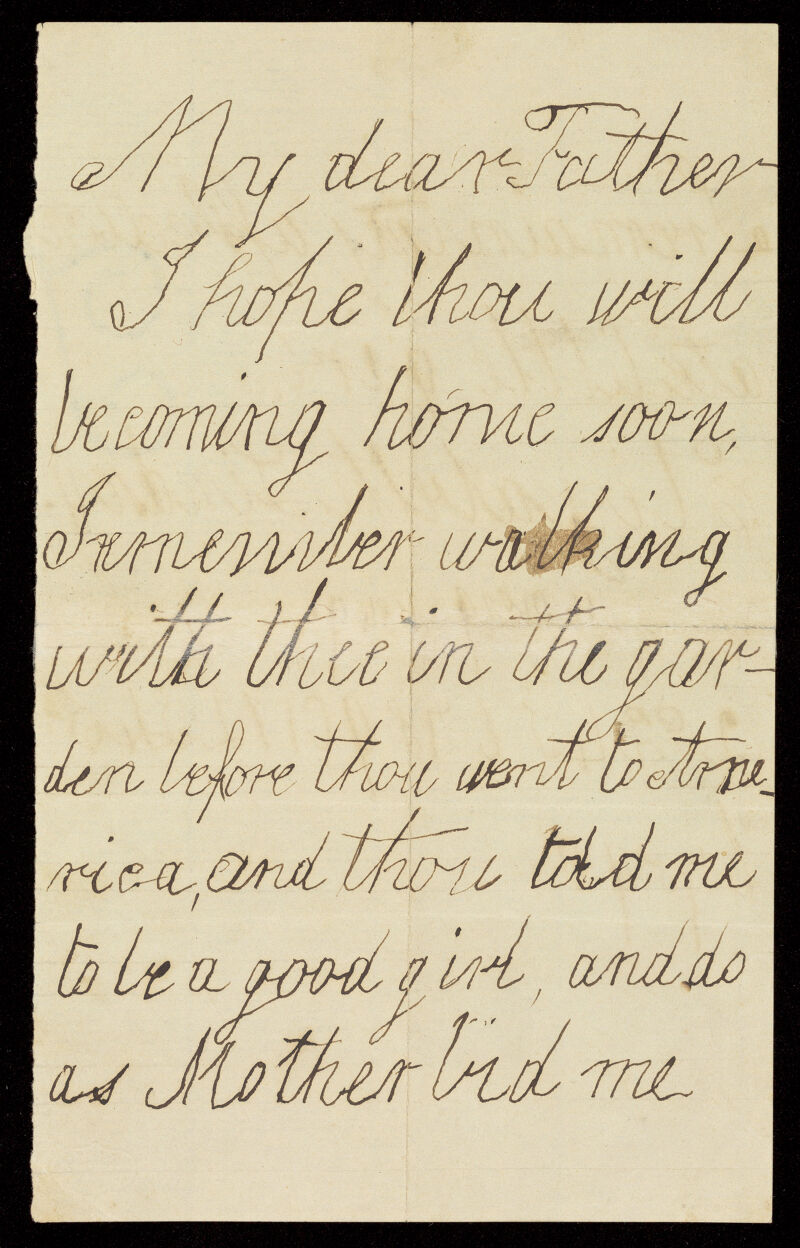 My dear Father
I hope thou will
be coming home soon,
I remember walking
with thee in the gar-
den before thou went to Ame-
rica, and thou told me
to be a good girl, and do
as Mother bid me